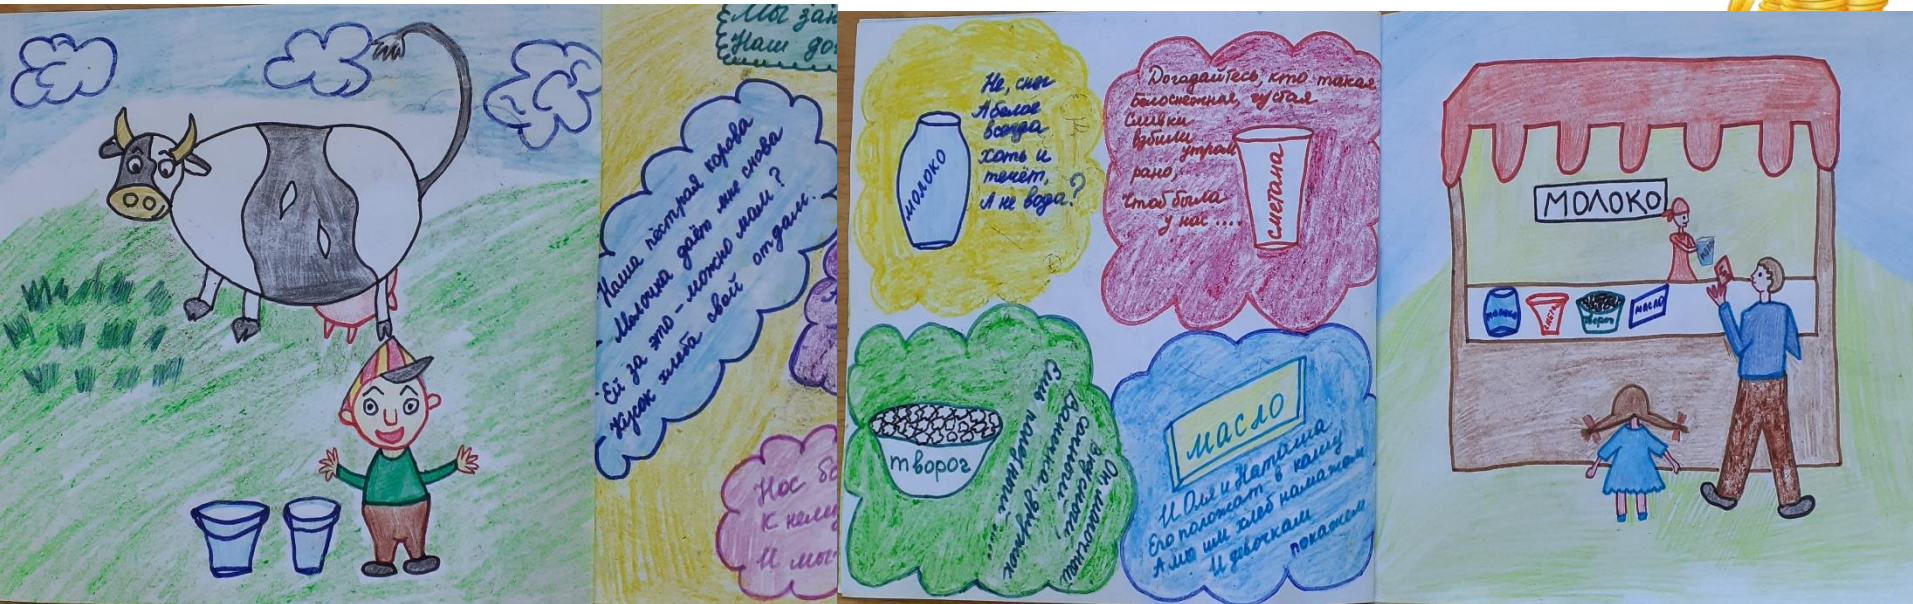 Мы зан
Наш до
Наша пёстрая корова
Молочка даёт мне снова
Ей за это - можно мам?
Кусок хлеба свой отдам.
Нос бо
К нему
И мы
Не, снег
А белое
всегда
Хоть и
течёт,
А не вода?
молоко
Догадайтесь, кто такая
Белоснежная, густая
Сливки
взбили
утром
рано,
Чтоб была
у нас ....
сметана
творог
Он молочный
Вкусный
сочный,
Ванечка, дружок
Ешь полезный ....
масло
И Оля и Наташа
Его положат в кашу
А мы им хлеб намажем
И девочкам
покажем
МОЛОКО
молоко
творог
масло